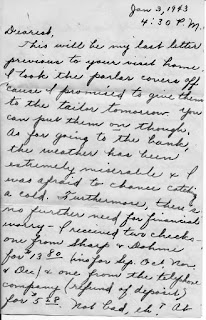 Jan 3, 1943
4:30 P.M.
Dearest,
This will be my last letter
previous to your visit home.
I took the parlor covers off
'cause I promised to give them
to the tailor tomorrow. You
can put them on though.
As for going to the bank,
the weather has been
extremely miserable & I
was afraid to chance catch'g
a cold. Furthermore, there's
no further need for financial
worry - I received two checks -
one from Sharp & Dohme
for 13.80 (ins for Sep. Oct. Nov.
& Dec) & one from the telephone
company (refund of deposit)
for 5.28. Not bad, eh? At